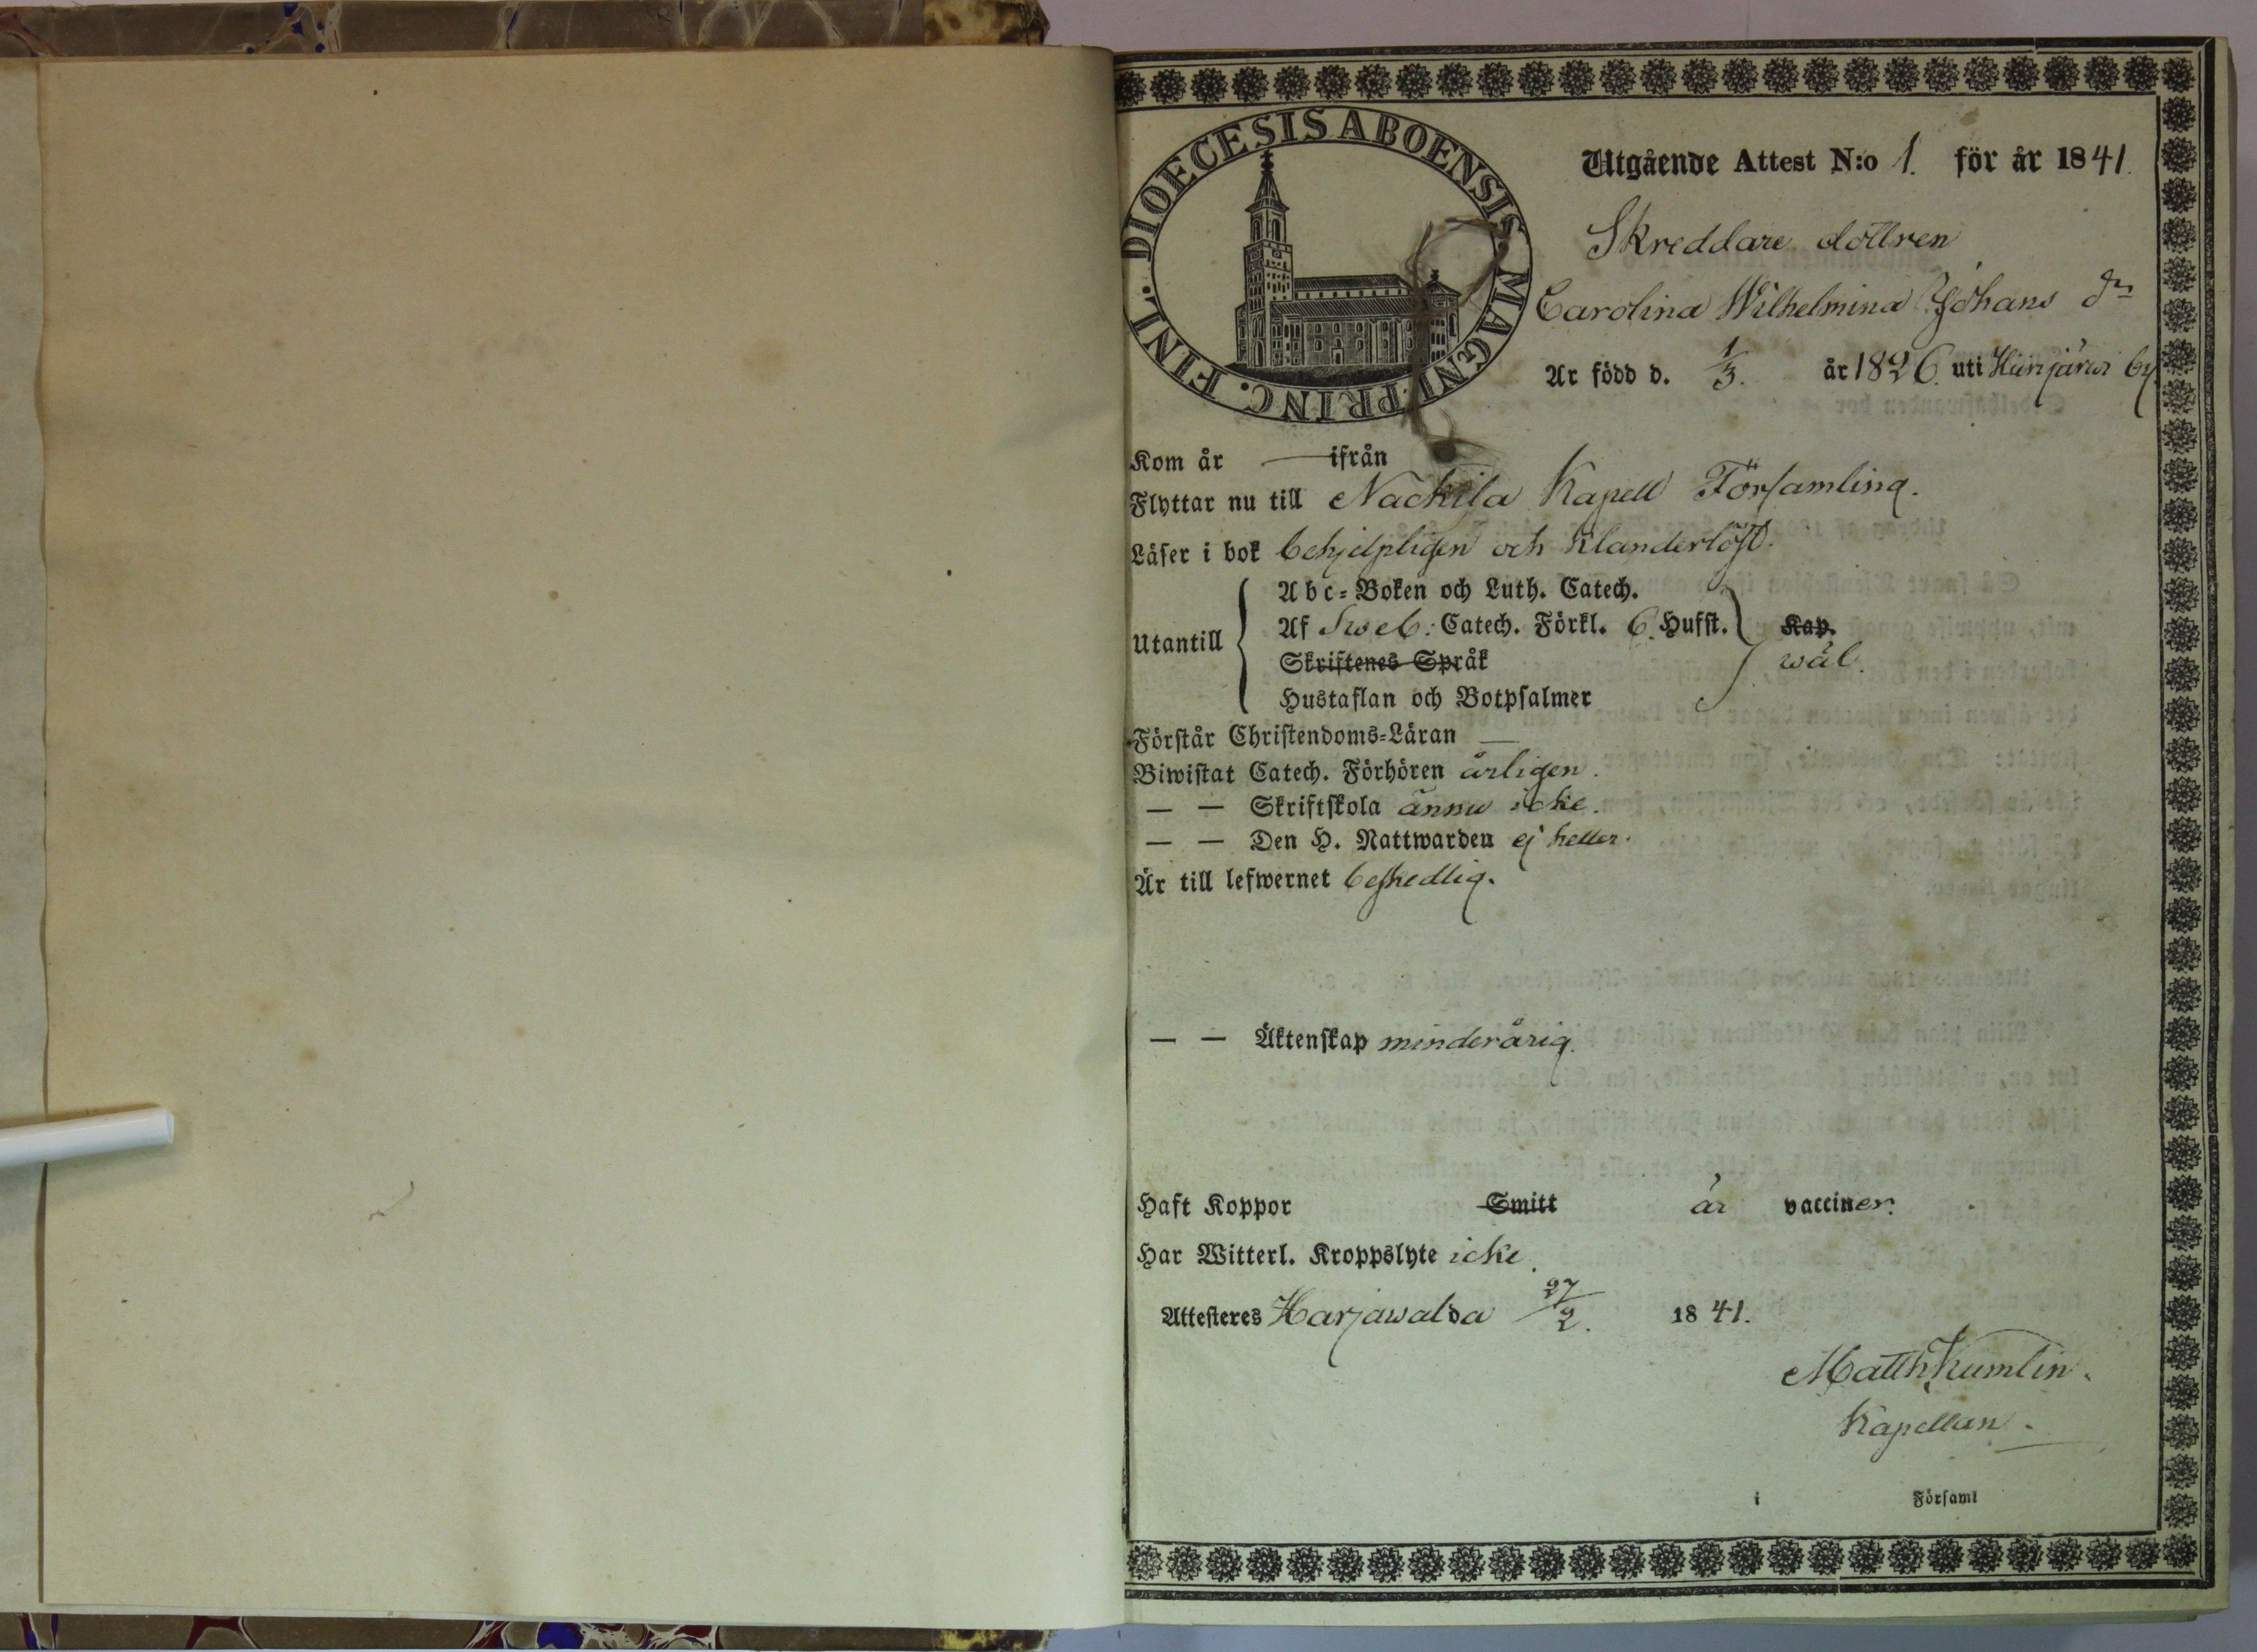 DIOECESIS ABOENSIS. MAGNI PRINC. FINL.
Utgående Attest N:o 1. för år 1841.
Skreddare dottren
Carolina Wilhelmina Johans dr
Är född d. 1/3. år 1826. uti Hiirijärwi by
Kom år — ifrån
Flyttar nu till Nackila Kapell Församling.
Läser i bok behjelpligen och klanderlöst.
Utantill
Abc-Boken och Luth. Catech.
Af Sweb: Catech. Förkl. 6. Hufst. Kap.
Skriftenes Språk wäl.
Hustaflan och Botpsalmer
Förstår Christendoms-Läran —
Biwistat Catech. Förhören årligen.
— — Skriftskola ännu icke.
— — Den H. Nattwarden ej heller.
Är till lefwernet beskedlig.
— — Äktenskap minderårig.
Haft Koppor Smitt är vacciner.
Har Witterl. Kroppslyte icke.
Attesteres Harjawalda 27/2. 1841.
Matth Kumlin.
Kapellan.
i Församl